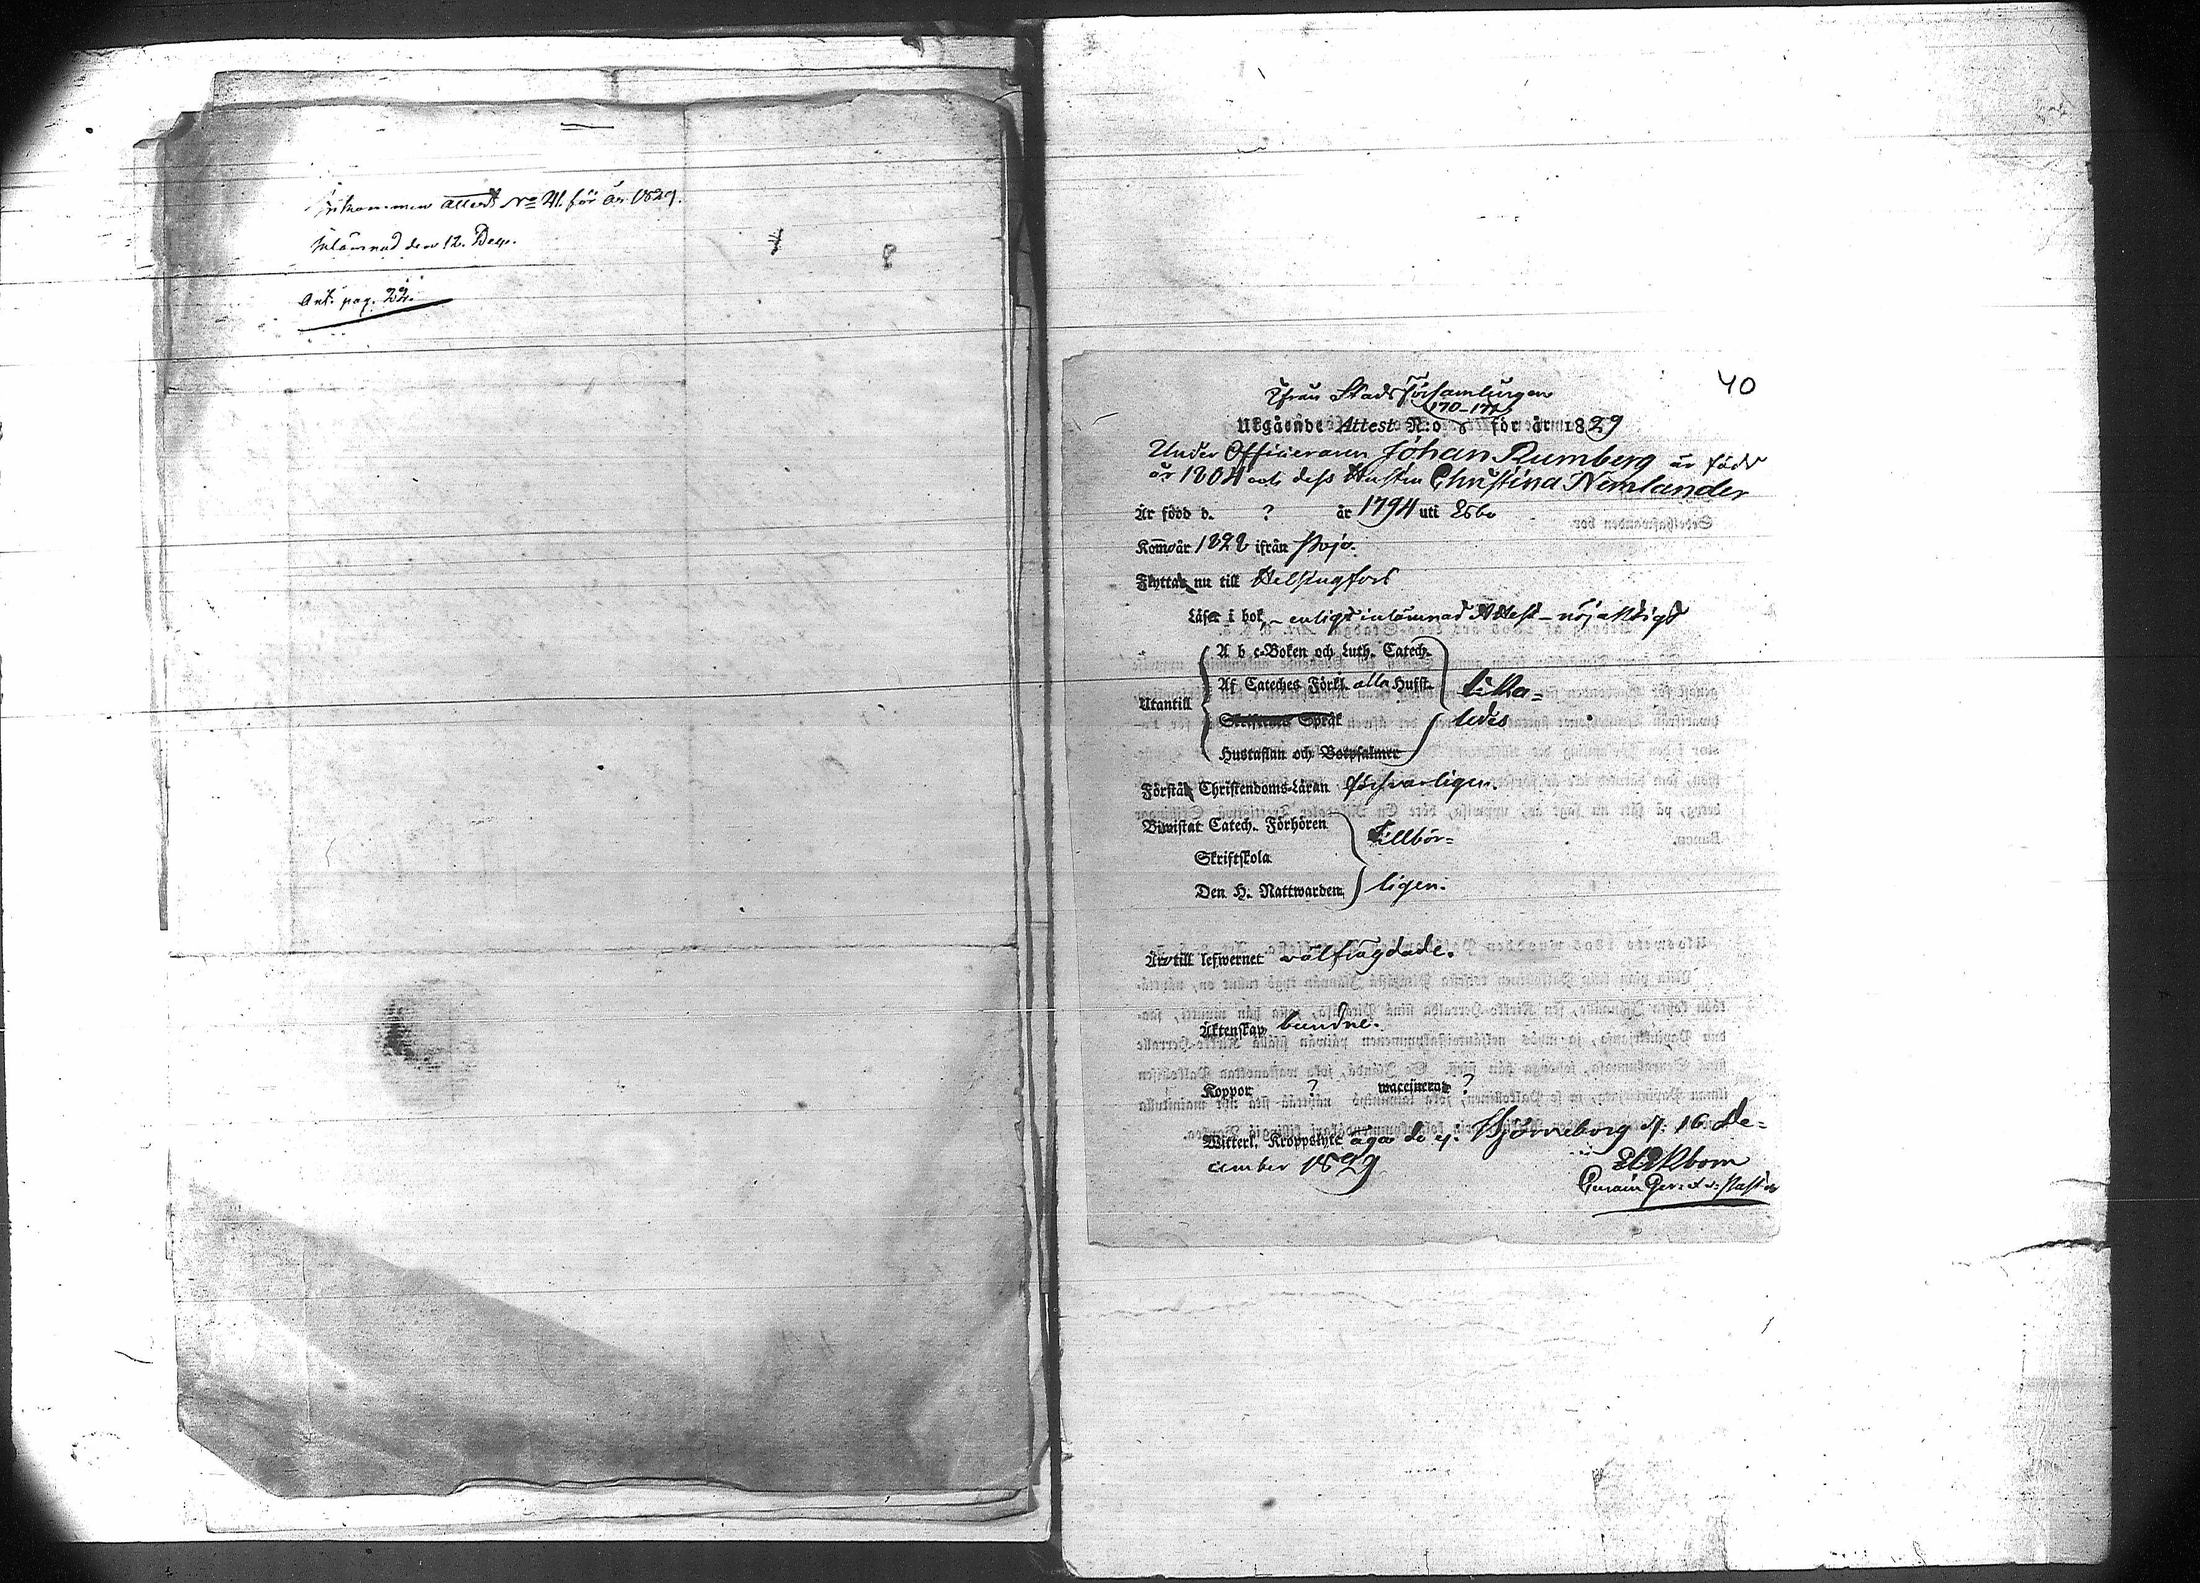 Inkommen attest No 21. för år 1829.
Inlämnad den 12. Dec.
Ant. pag. 22.
40
Ifrån Stads församlingen
170-171
Utgående Attest N:o för år 1829
Under Officieraren Johan Rumberg är född
år 1804 och dess Hustru Christina Nemlander
Är född d. ? år 1794 uti Esbo
Kom år 1828 ifrån Pojo.
Flyttar nu till Helsingfors
Läser i bok, enligt inlämnad Attest - nöjaktigt
A b c-Boken och Luth. Catech.
Af Cateches Förkl. alla Hufst. lika=
Utantill
Skriftenes Språk ledes
Hustaflan och Botpsalmer
Förstår Christendoms-Läran försvarligen.
Biwistat Catech. Förhören tillbör=
Skriftskola
Den H. Nattwarden ligen.
Är till lefwernet välfrägdade.
Äktenskap bundne.
Koppor ? waccinerad ?
Witterl. Kroppslyte äga de ej. Björneborg d. 16 De=
cember 1829